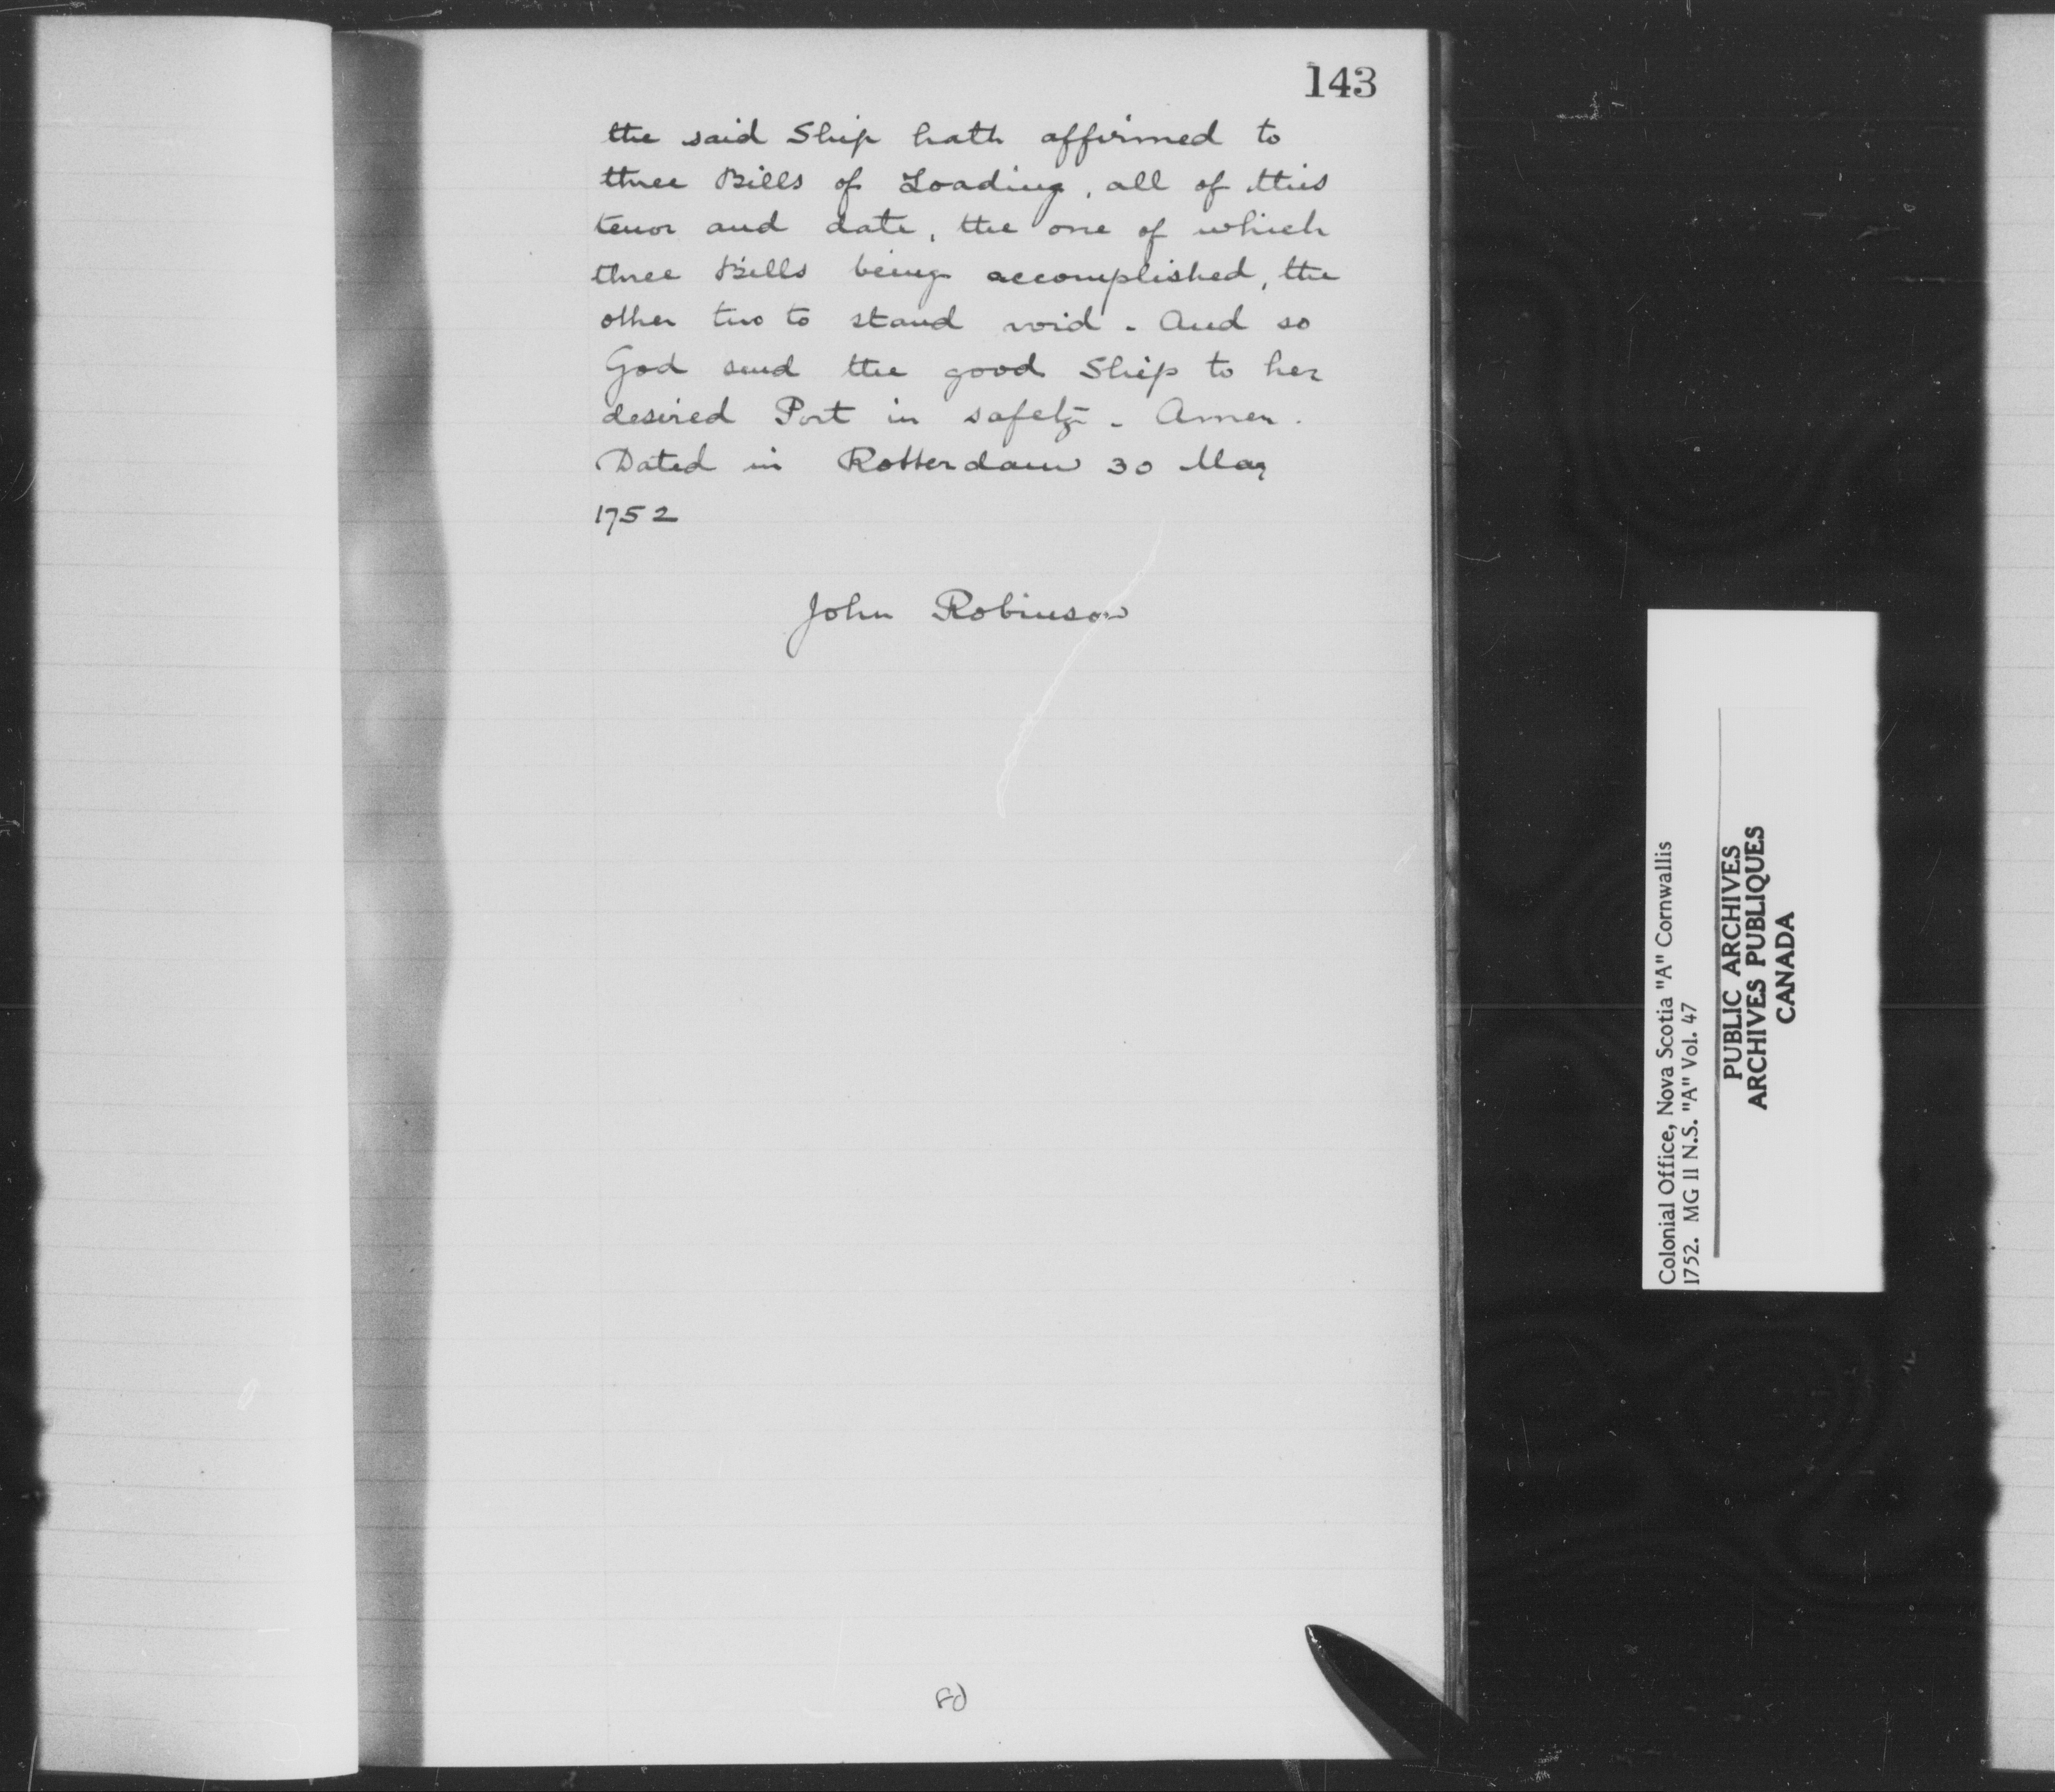 143
the said Ship hath affirmed to
three Bills of Loading, all of this
tenor and date, the one of which
three Bills being accomplished, the
other two to stand void. And so
God send the good Ship to her
desired Port in safety. Amen.
Dated in Rotterdam 30 May
1752
John Robinson
Colonial Office, Nova Scotia "A" Cornwallis
1752. MG 11 N.S. "A" Vol. 47
PUBLIC ARCHIVES
ARCHIVES PUBLIQUES
CANADA